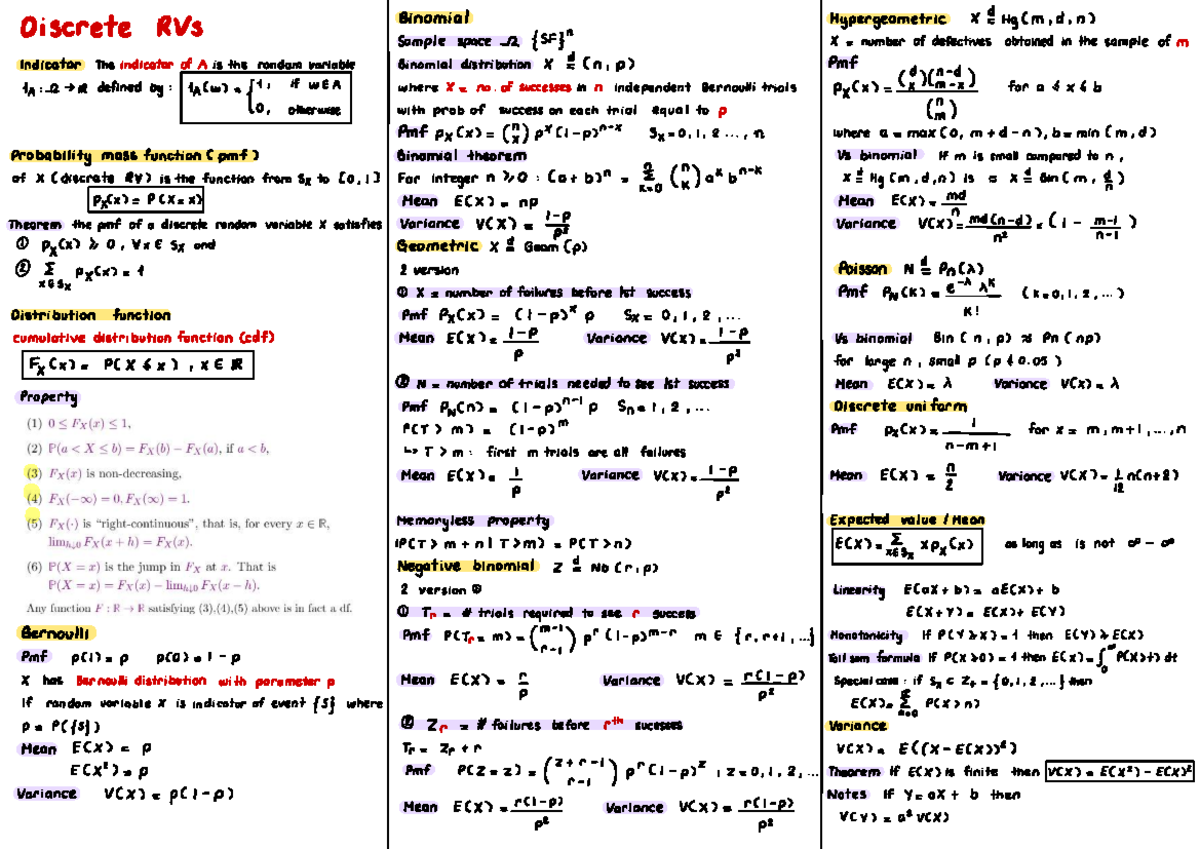 Discrete RVs
Indicator The indicator of A is the random variable
1_A : Ω → ℝ defined by : 1_A(ω) = { 1, if ω ∈ A
0, otherwise
Probability mass function (pmf)
of X (discrete RV) is the function from S_X to [0,1]
p_X(x) = P(X = x)
Theorem the pmf of a discrete random variable X satisfies
① p_X(x) ⩾ 0, ∀x ∈ S_X and
② Σ_{x∈S_X} p_X(x) = 1
Distribution function
cumulative distribution function (cdf)
F_X(x) = P(X ⩽ x), x ∈ ℝ
Property
(1) 0 ≤ F_X(x) ≤ 1,
(2) ℙ(a < X ≤ b) = F_X(b) − F_X(a), if a < b,
(3) F_X(x) is non-decreasing,
(4) F_X(−∞) = 0, F_X(∞) = 1.
(5) F_X(·) is "right-continuous", that is, for every x ∈ ℝ,
lim_{h↓0} F_X(x + h) = F_X(x).
(6) ℙ(X = x) is the jump in F_X at x. That is
ℙ(X = x) = F_X(x) − lim_{h↓0} F_X(x − h).
Any function F : ℝ → ℝ satisfying (3),(4),(5) above is in fact a df.
Bernoulli
Pmf p(1) = p p(0) = 1 - p
X has Bernoulli distribution with parameter p
if random variable X is indicator of event {S} where
p = P({S})
Mean E(X) = p
E(X²) = p
Variance V(X) = p(1-p)
Binomial
Sample space Ω {SF}^n
Binomial distribution X =^d (n,p)
where X = no. of successes in n independent Bernoulli trials
with prob of success on each trial equal to p
Pmf p_X(x) = (n x) p^x (1-p)^{n-x} S_X = 0,1,2 ..., n
Binomial theorem
For integer n ⩾ 0 : (a+b)^n = Σ_{k=0}^n (n k) a^k b^{n-k}
Mean E(X) = np
Variance V(X) = (1-p)/p²
Geometric X =^d Geom (p)
2 version
① X = number of failures before 1st success
Pmf P_X(x) = (1-p)^x p S_X = 0,1,2,...
Mean E(X) = (1-p)/p Variance V(X) = (1-p)/p²
② N = number of trials needed to see 1st success
Pmf P_N(n) = (1-p)^{n-1} p S_n = 1,2,...
P(T > m) = (1-p)^m
↳ T > m : first m trials are all failures
Mean E(X) = 1/p Variance V(X) = (1-p)/p²
Memoryless property
P(T > m + n | T > m) = P(T > n)
Negative binomial Z =^d Nb (r,p)
2 version
① T_r = # trials required to see r success
Pmf P(T_r = m) = (m-1 r-1) p^r (1-p)^{m-r} m ∈ {r, r+1,...}
Mean E(X) = r/p Variance V(X) = r(1-p)/p²
② Z_r = # failures before r^th sucesses
T_r = Z_r + r
Pmf P(Z = z) = (z+r-1 r-1) p^r (1-p)^z ; z = 0,1,2,...
Mean E(X) = r(1-p)/p² Variance V(X) = r(1-p)/p²
Hypergeometric X =^d Hg(m,d,n)
X = number of defectives obtained in the sample of m
Pmf
p_X(x) = (d x)(n-d m-x)/(n m) for a ⩽ x ⩽ b
where a = max(0, m+d-n), b = min(m,d)
Vs binomial If m is small compared to n,
X =^d Hg(m,d,n) is ≈ X =^d Bin(m, d/n)
Mean E(X) = md/n
Variance V(X) = md(n-d)/n² × (1 - (m-1)/(n-1))
Poisson N =^d Pn(λ)
Pmf P_N(k) = e^{-λ} λ^k / k! (k=0,1,2,...)
Vs binomial Bin(n,p) ≈ Pn(np)
for large n, small p (p ⩽ 0.05)
Mean E(X) = λ Variance V(X) = λ
Discrete uniform
Pmf p_X(x) = 1/(n-m+1) for x = m, m+1,..., n
Mean E(X) = n/2 Variance V(X) = 1/12 n(n+2)
Expected value / Mean
E(X) = Σ_{x∈S_X} x p_X(x) as long as is not ∞ - ∞
Linearity E(aX + b) = aE(X) + b
E(X+Y) = E(X) + E(Y)
Monotonicity If P(Y ⩾ X) = 1 then E(Y) ⩾ E(X)
Tail sum formula If P(X ⩾ 0) = 1 then E(X) = ∫_0^∞ P(X>t) dt
Special case : if S_X ⊂ Z_+ = {0,1,2,...} then
E(X) = Σ_{n=0}^∞ P(X > n)
Variance
V(X) = E((X - E(X))²)
Theorem If E(X) is finite then V(X) = E(X²) - E(X)²
Notes If Y = aX + b then
V(Y) = a² V(X)